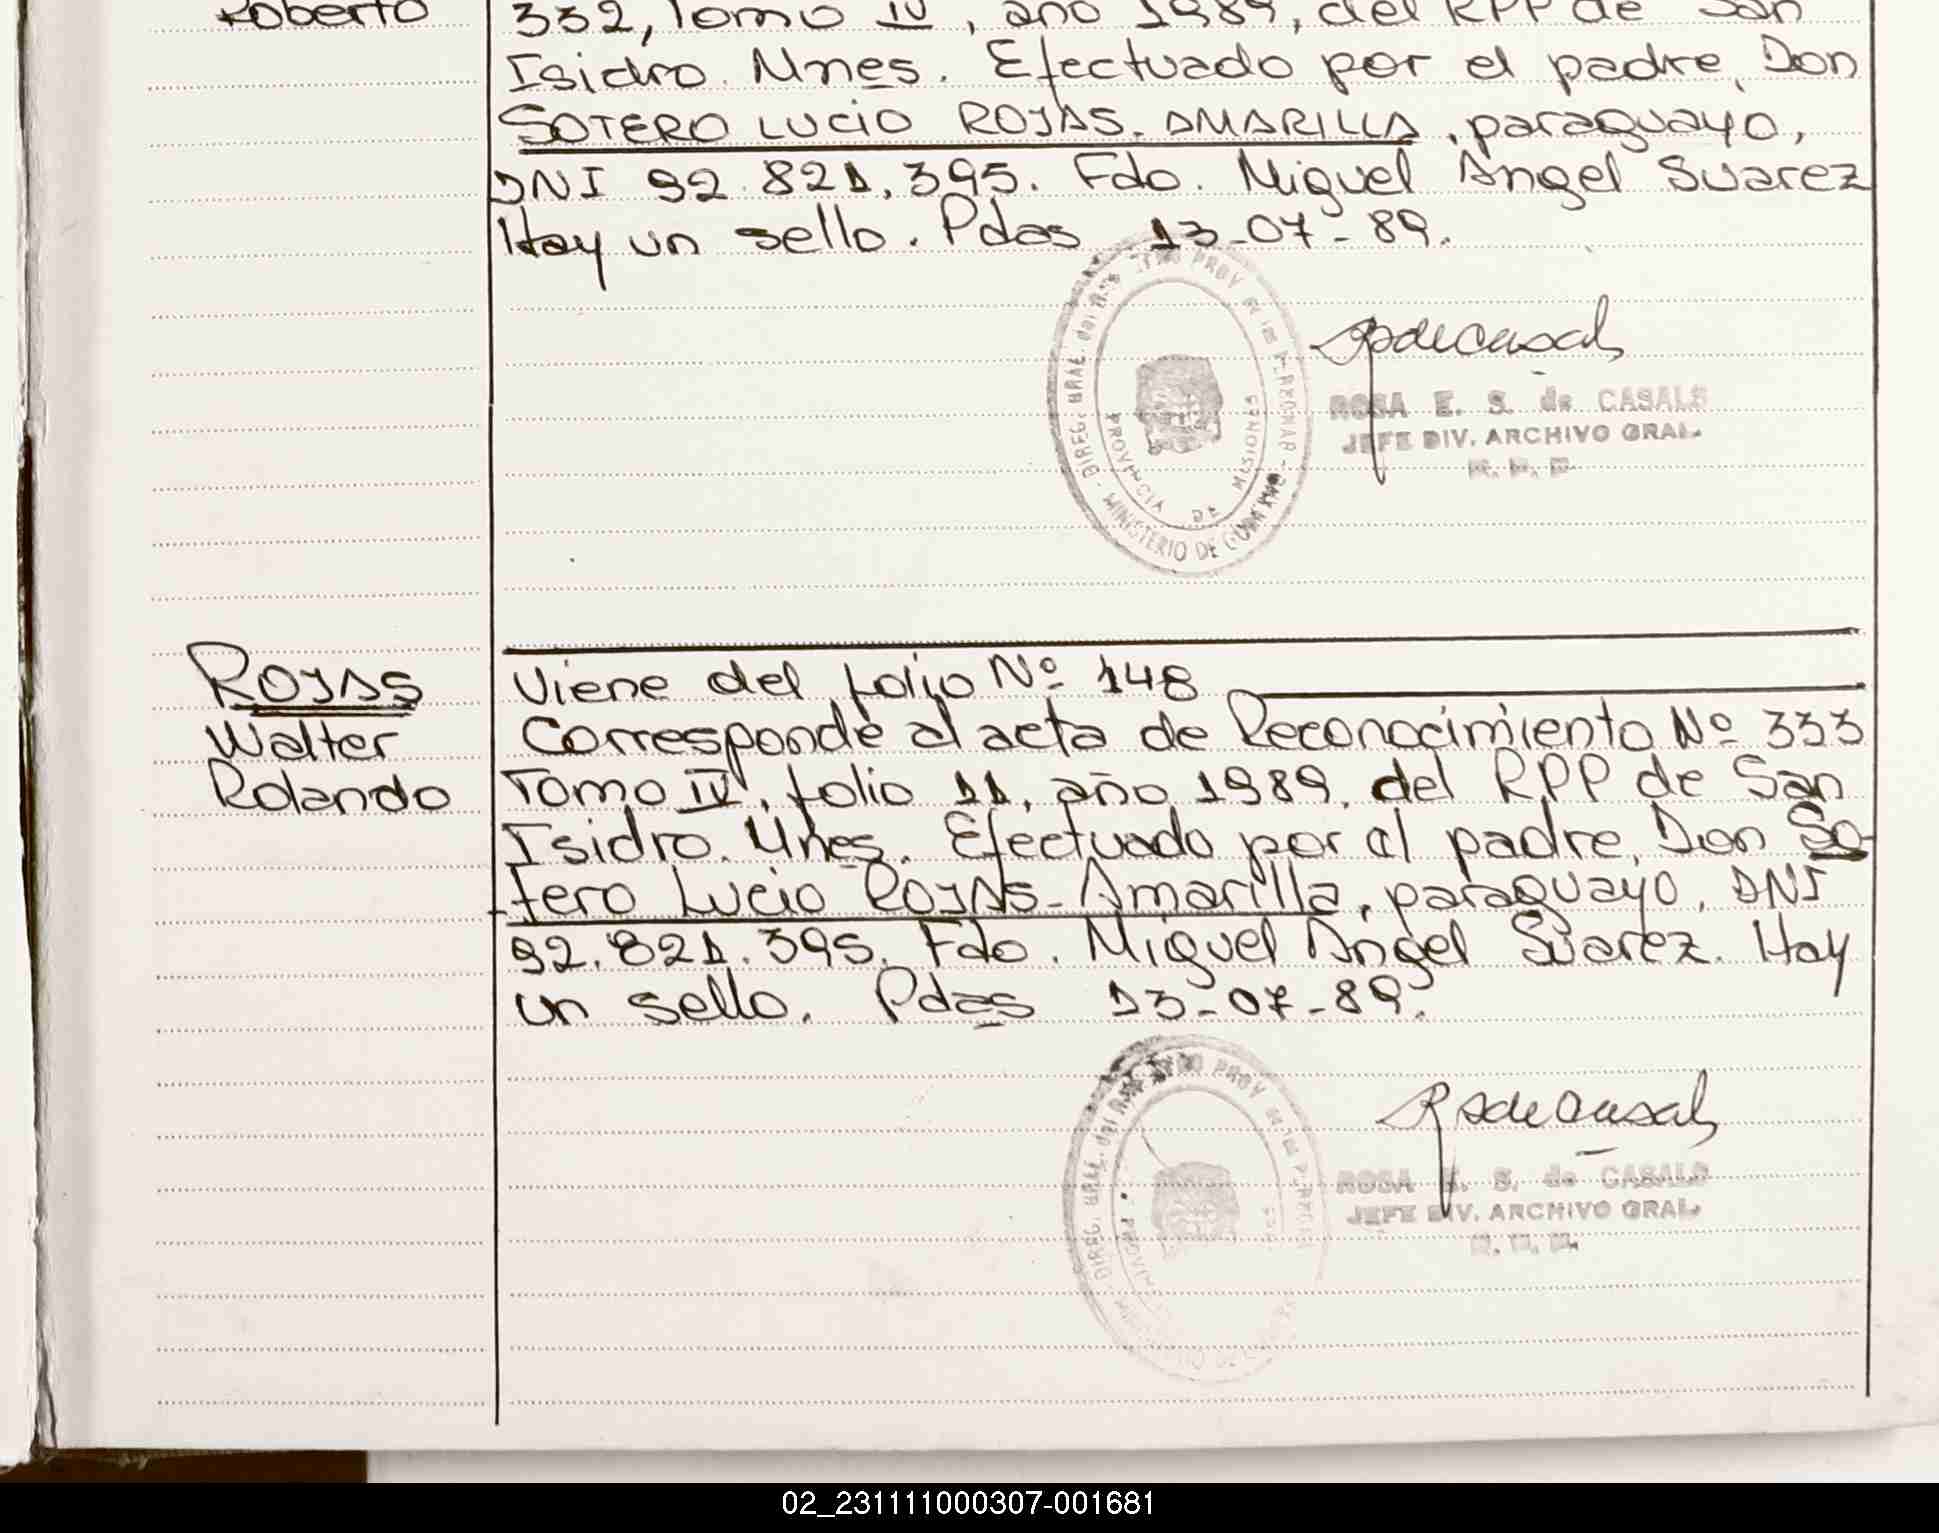 Roberto
332, Tomo IV, año 1989, del RPP de San
Isidro. Mnes. Efectuado por el padre, Don
SOTERO LUCIO ROJAS-AMARILLA, paraguayo,
DNI 92.821.395. Fdo. Miguel Angel Suarez
Hay un sello. Pdas 13-07-89.
DIREC. GRAL. del PROV de las
PROVINCIA DE MISIONES
MINISTERIO DE
ROSA E. S. de CASALS
JEFE DIV. ARCHIVO GRAL.
ROJAS
Walter
Rolando
Viene del folio Nº 148
Corresponde al acta de Reconocimiento Nº 333
Tomo IV, folio 11, año 1989, del RPP de San
Isidro. Mnes. Efectuado por el padre, Don So-
tero Lucio ROJAS-Amarilla, paraguayo, DNI
92.821.395. Fdo. Miguel Angel Suarez. Hay
un sello. Pdas 13-07-89.
DIREC. GRAL. del PROV de las
ROSA E. S. de CASALS
JEFE DIV. ARCHIVO GRAL.
02_231111000307-001681